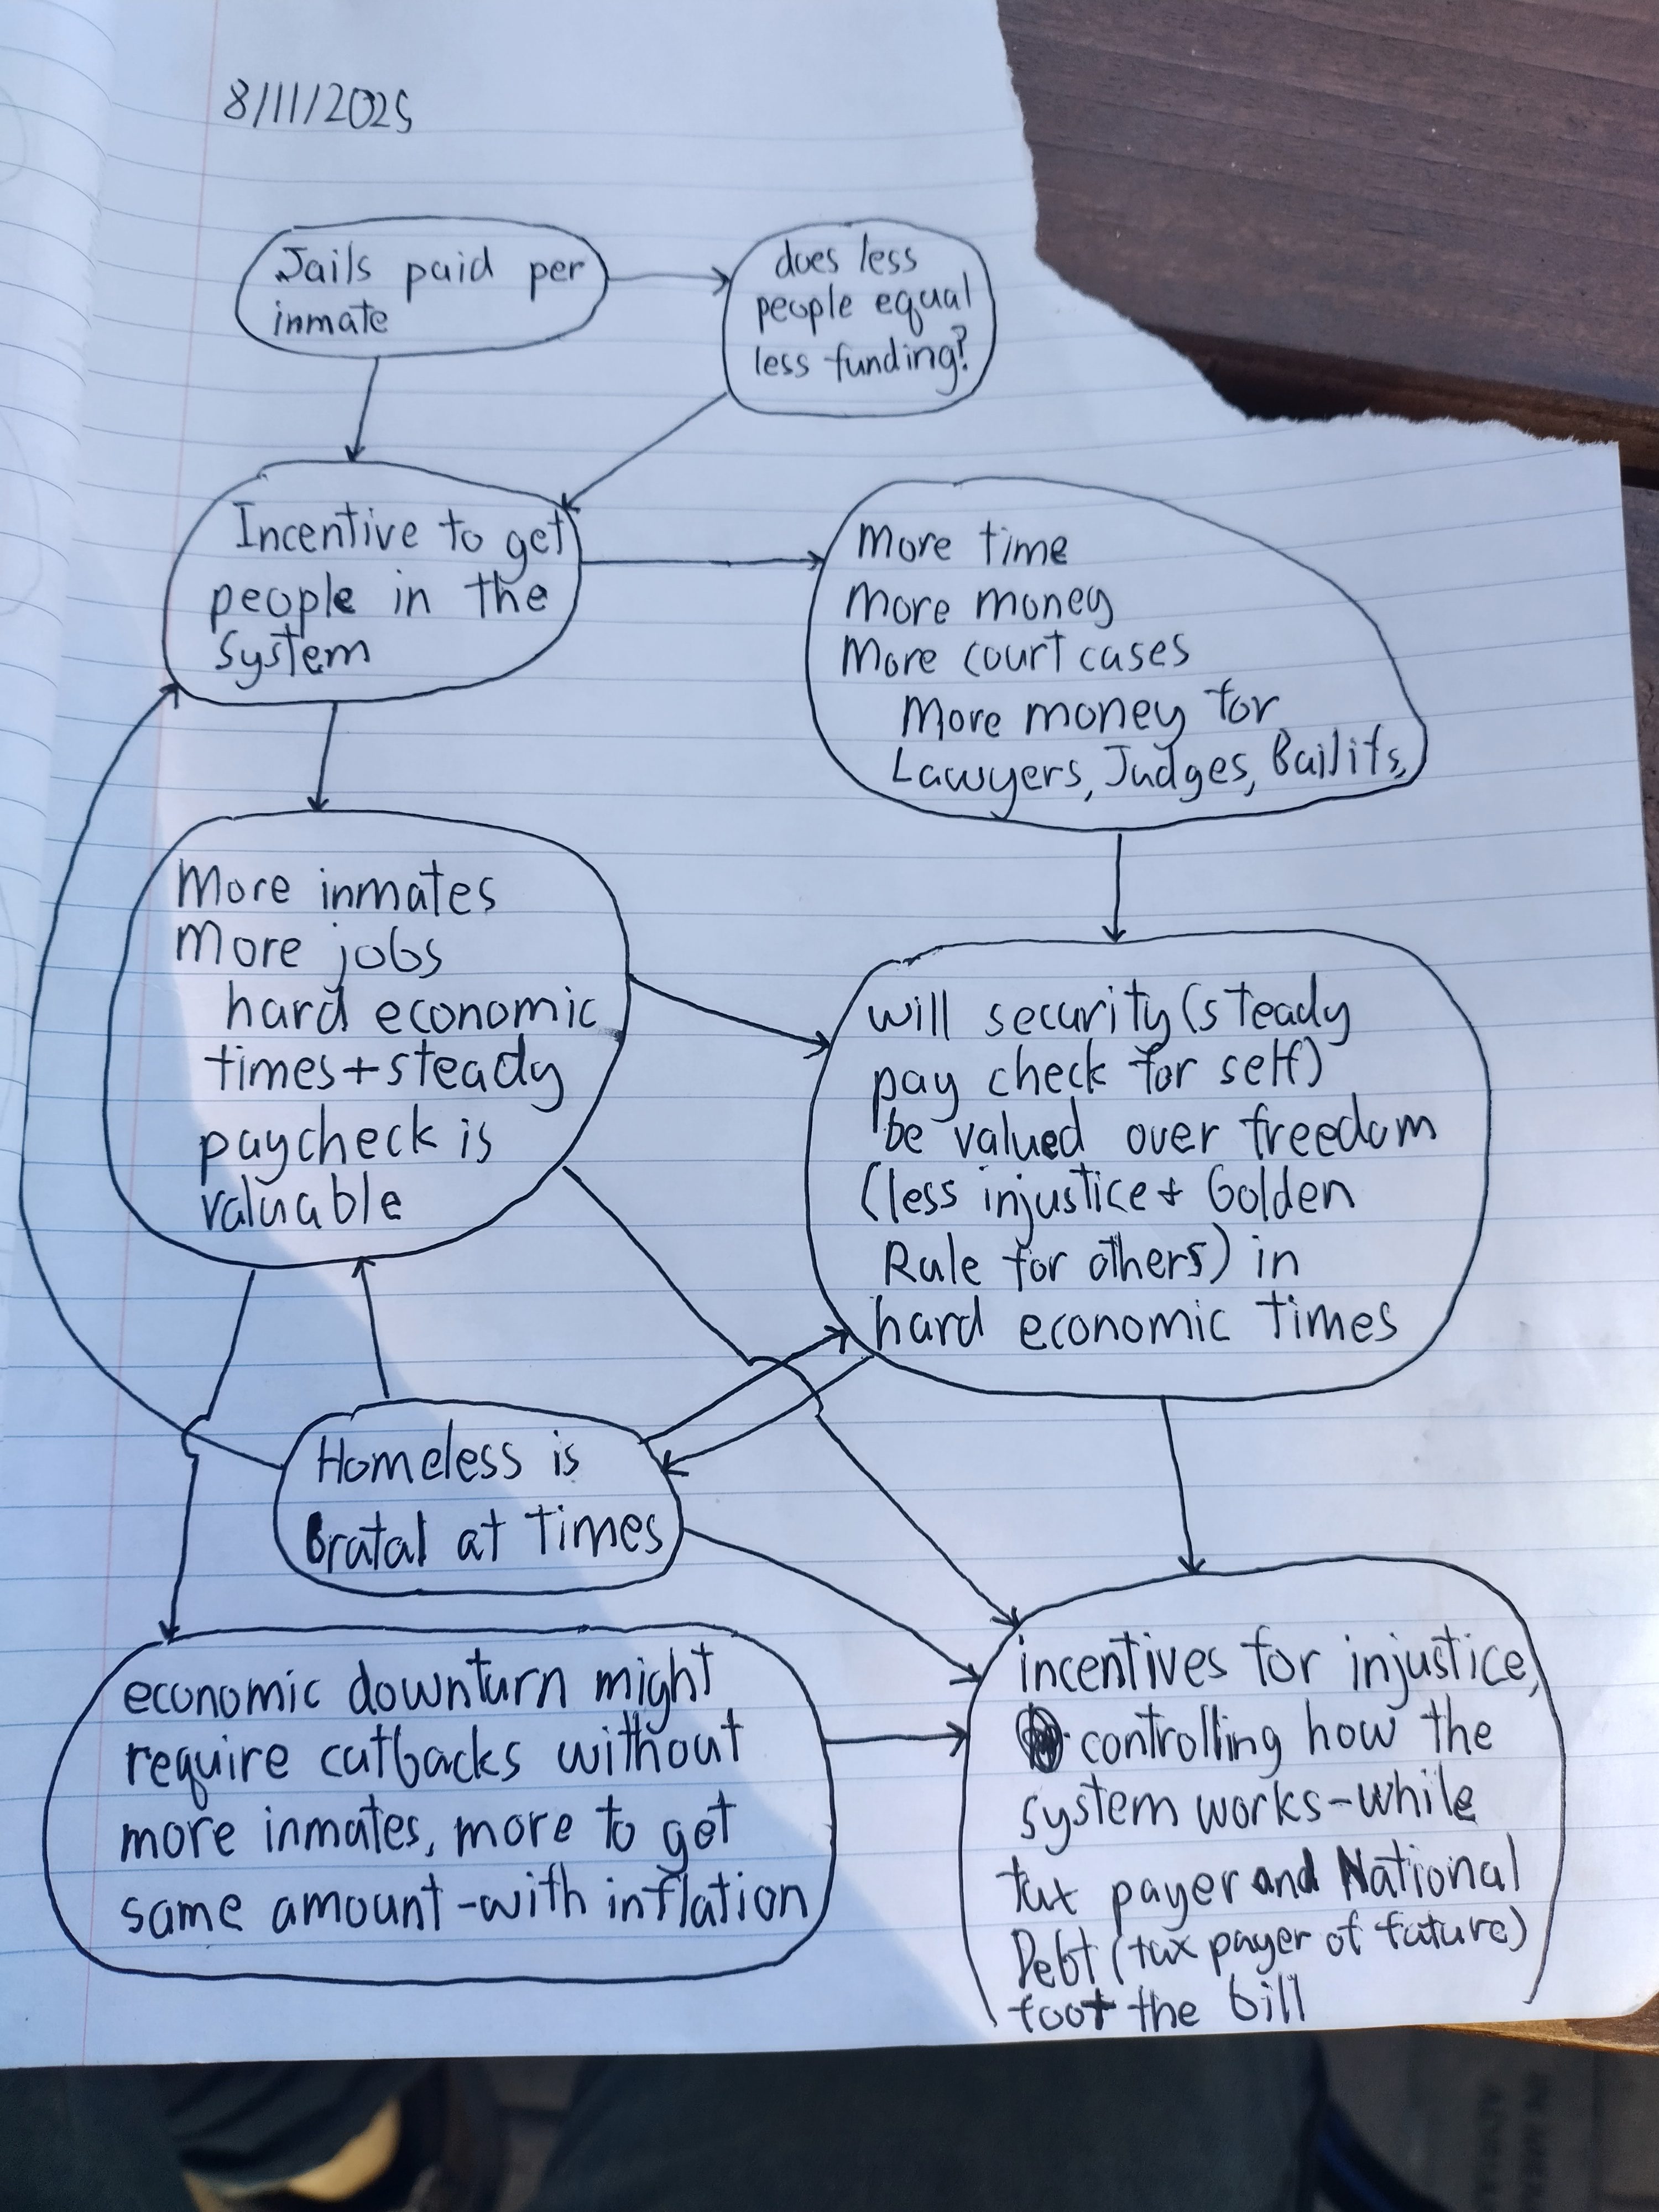 8/11/2025
Jails paid per
inmate
does less
people equal
less funding?
Incentive to get
people in the
system
More time
more money
More court cases
More money for
Lawyers, Judges, Bailifs,
More inmates
More jobs
hard economic
times+steady
paycheck is
valuable
will security (steady
pay check for self)
be valued over freedom
(less injustice + Golden
Rule for others) in
hard economic times
Homeless is
Brutal at times
economic downturn might
require cutbacks without
more inmates, more to get
same amount-with inflation
incentives for injustice,
controlling how the
system works-while
tax payer and National
Debt (tax payer of future)
foot the bill